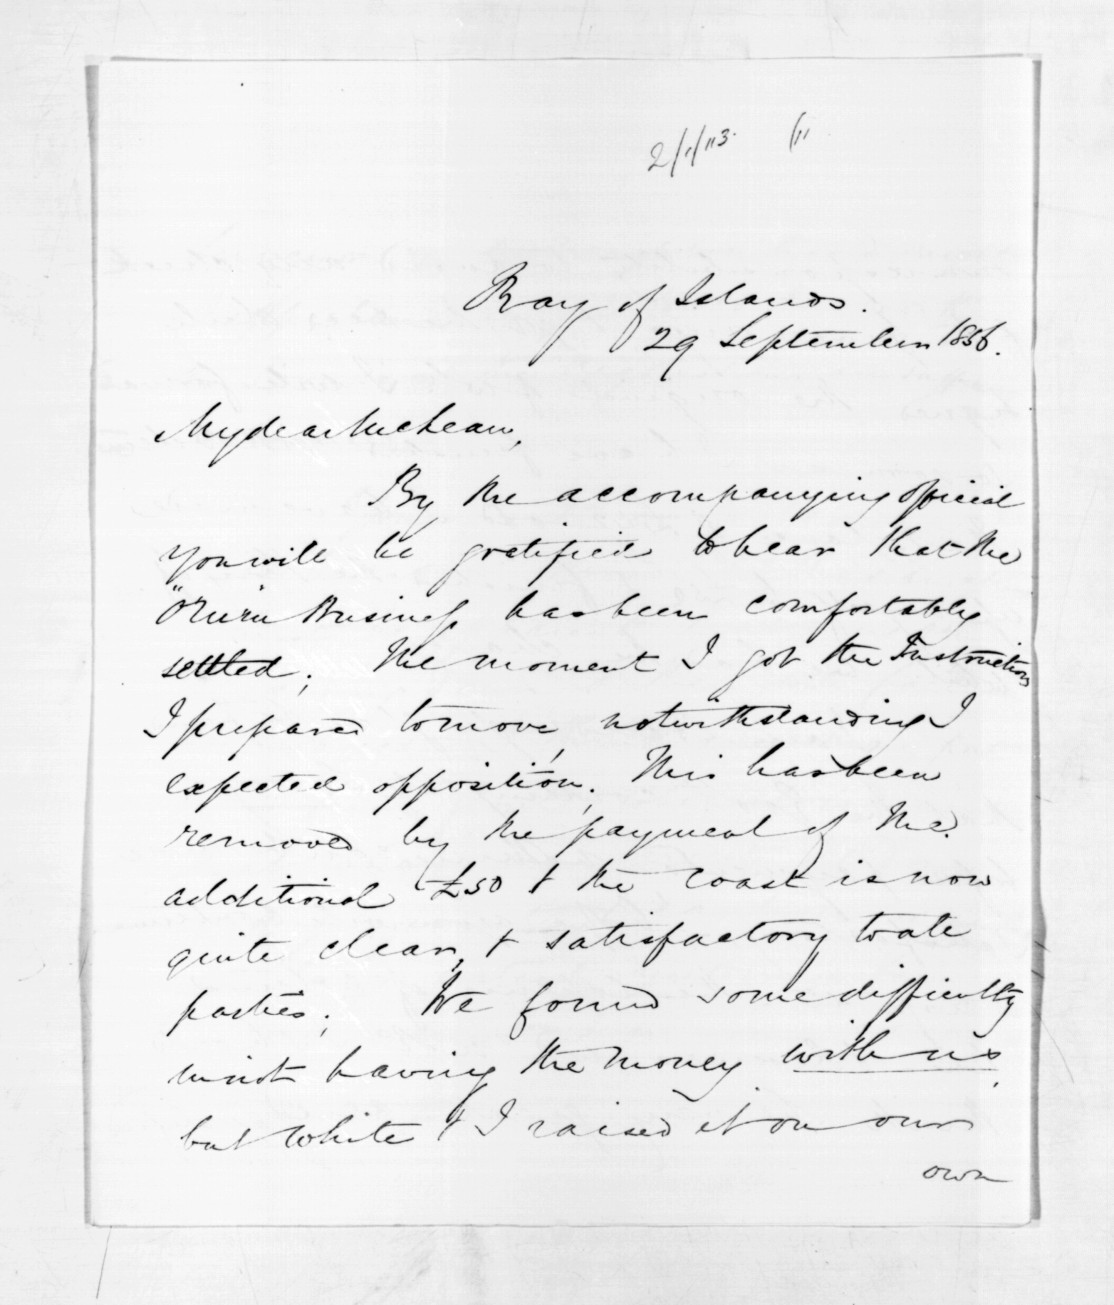 Bay of Islands.
29 September 1856.
My dear McLean,
By the accompanying official
you will be gratified to hear that the
"Oruru Business has been comfortably
settled. The moment I got the Instructions
I prepared to move, notwithstanding I
expected opposition. This has been
removed by the payment of the
additional £50 & the coast is now
quite clear, & satisfactory to all
parties. We found some difficulty
in not having the money with us
but White & I raised it on our
own